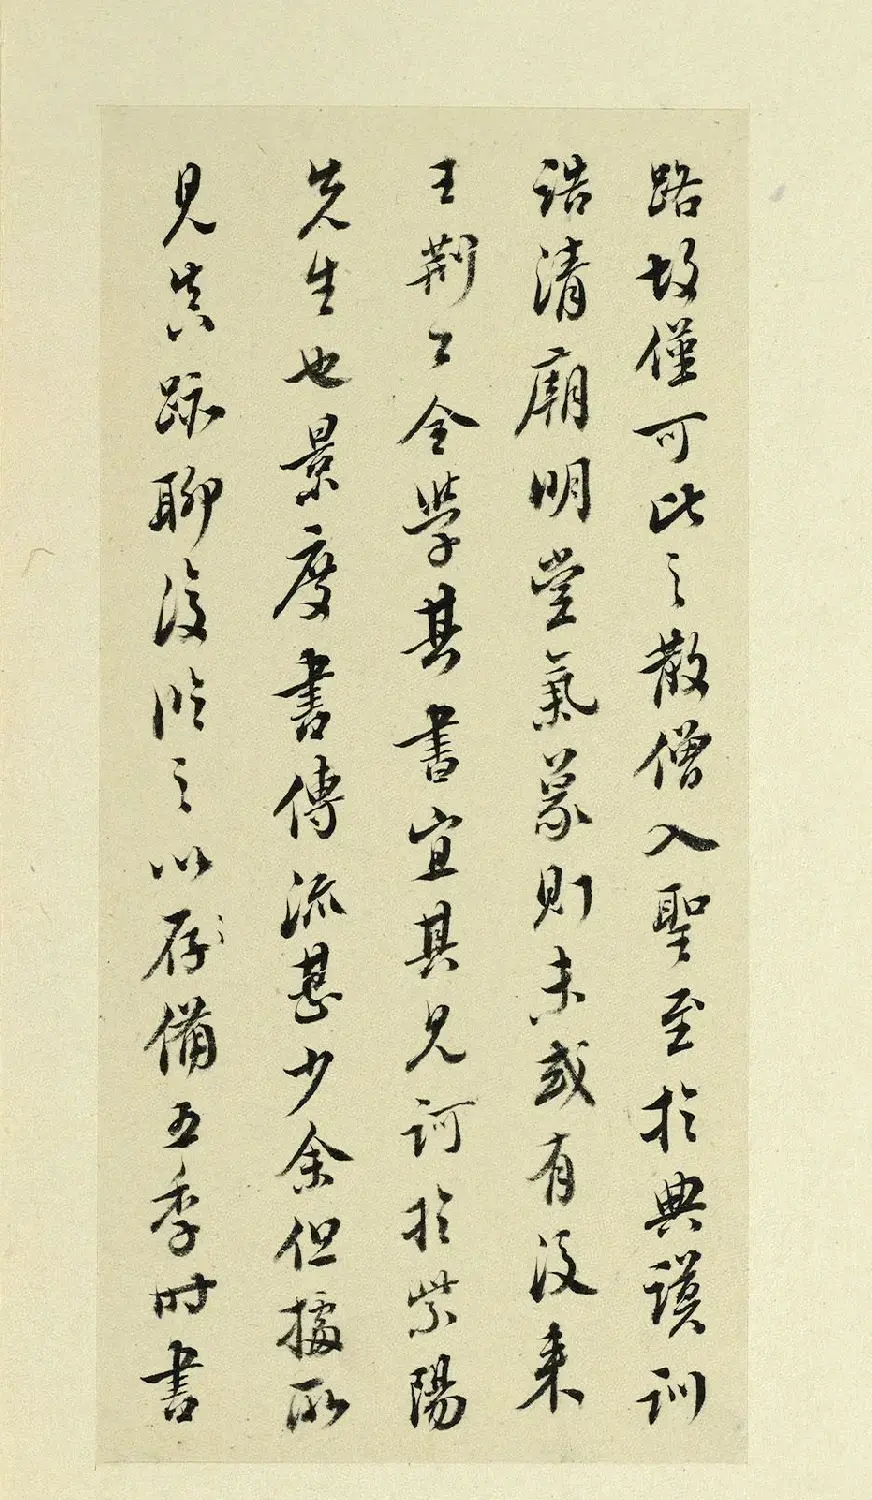 路故僅可比之散僧入聖至於典謨訓
誥清廟明堂氣象則未或有後来
王荆公全學其書宜其見訶於紫陽
先生也景度書傳流甚少余但據所
見真跡聊復臨之以存備五季時書